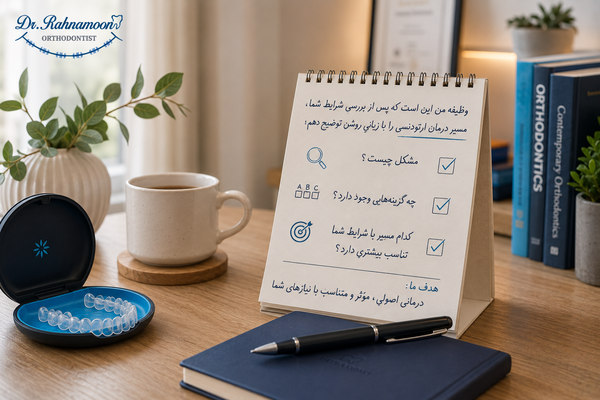 Dr. Rahnamoon
ORTHODONTIST
وظیفه من این است که پس از بررسی شرایط شما،
مسیر درمان ارتودنسی را با زبانی روشن توضیح دهم:
مشکل چیست؟
A B C
چه گزینه‌هایی وجود دارد؟
کدام مسیر با شرایط شما
تناسب بیشتری دارد؟
هدف ما:
درمانی اصولی، مؤثر و متناسب با نیازهای شما
ORTHODONTICS
Contemporary Orthodontics